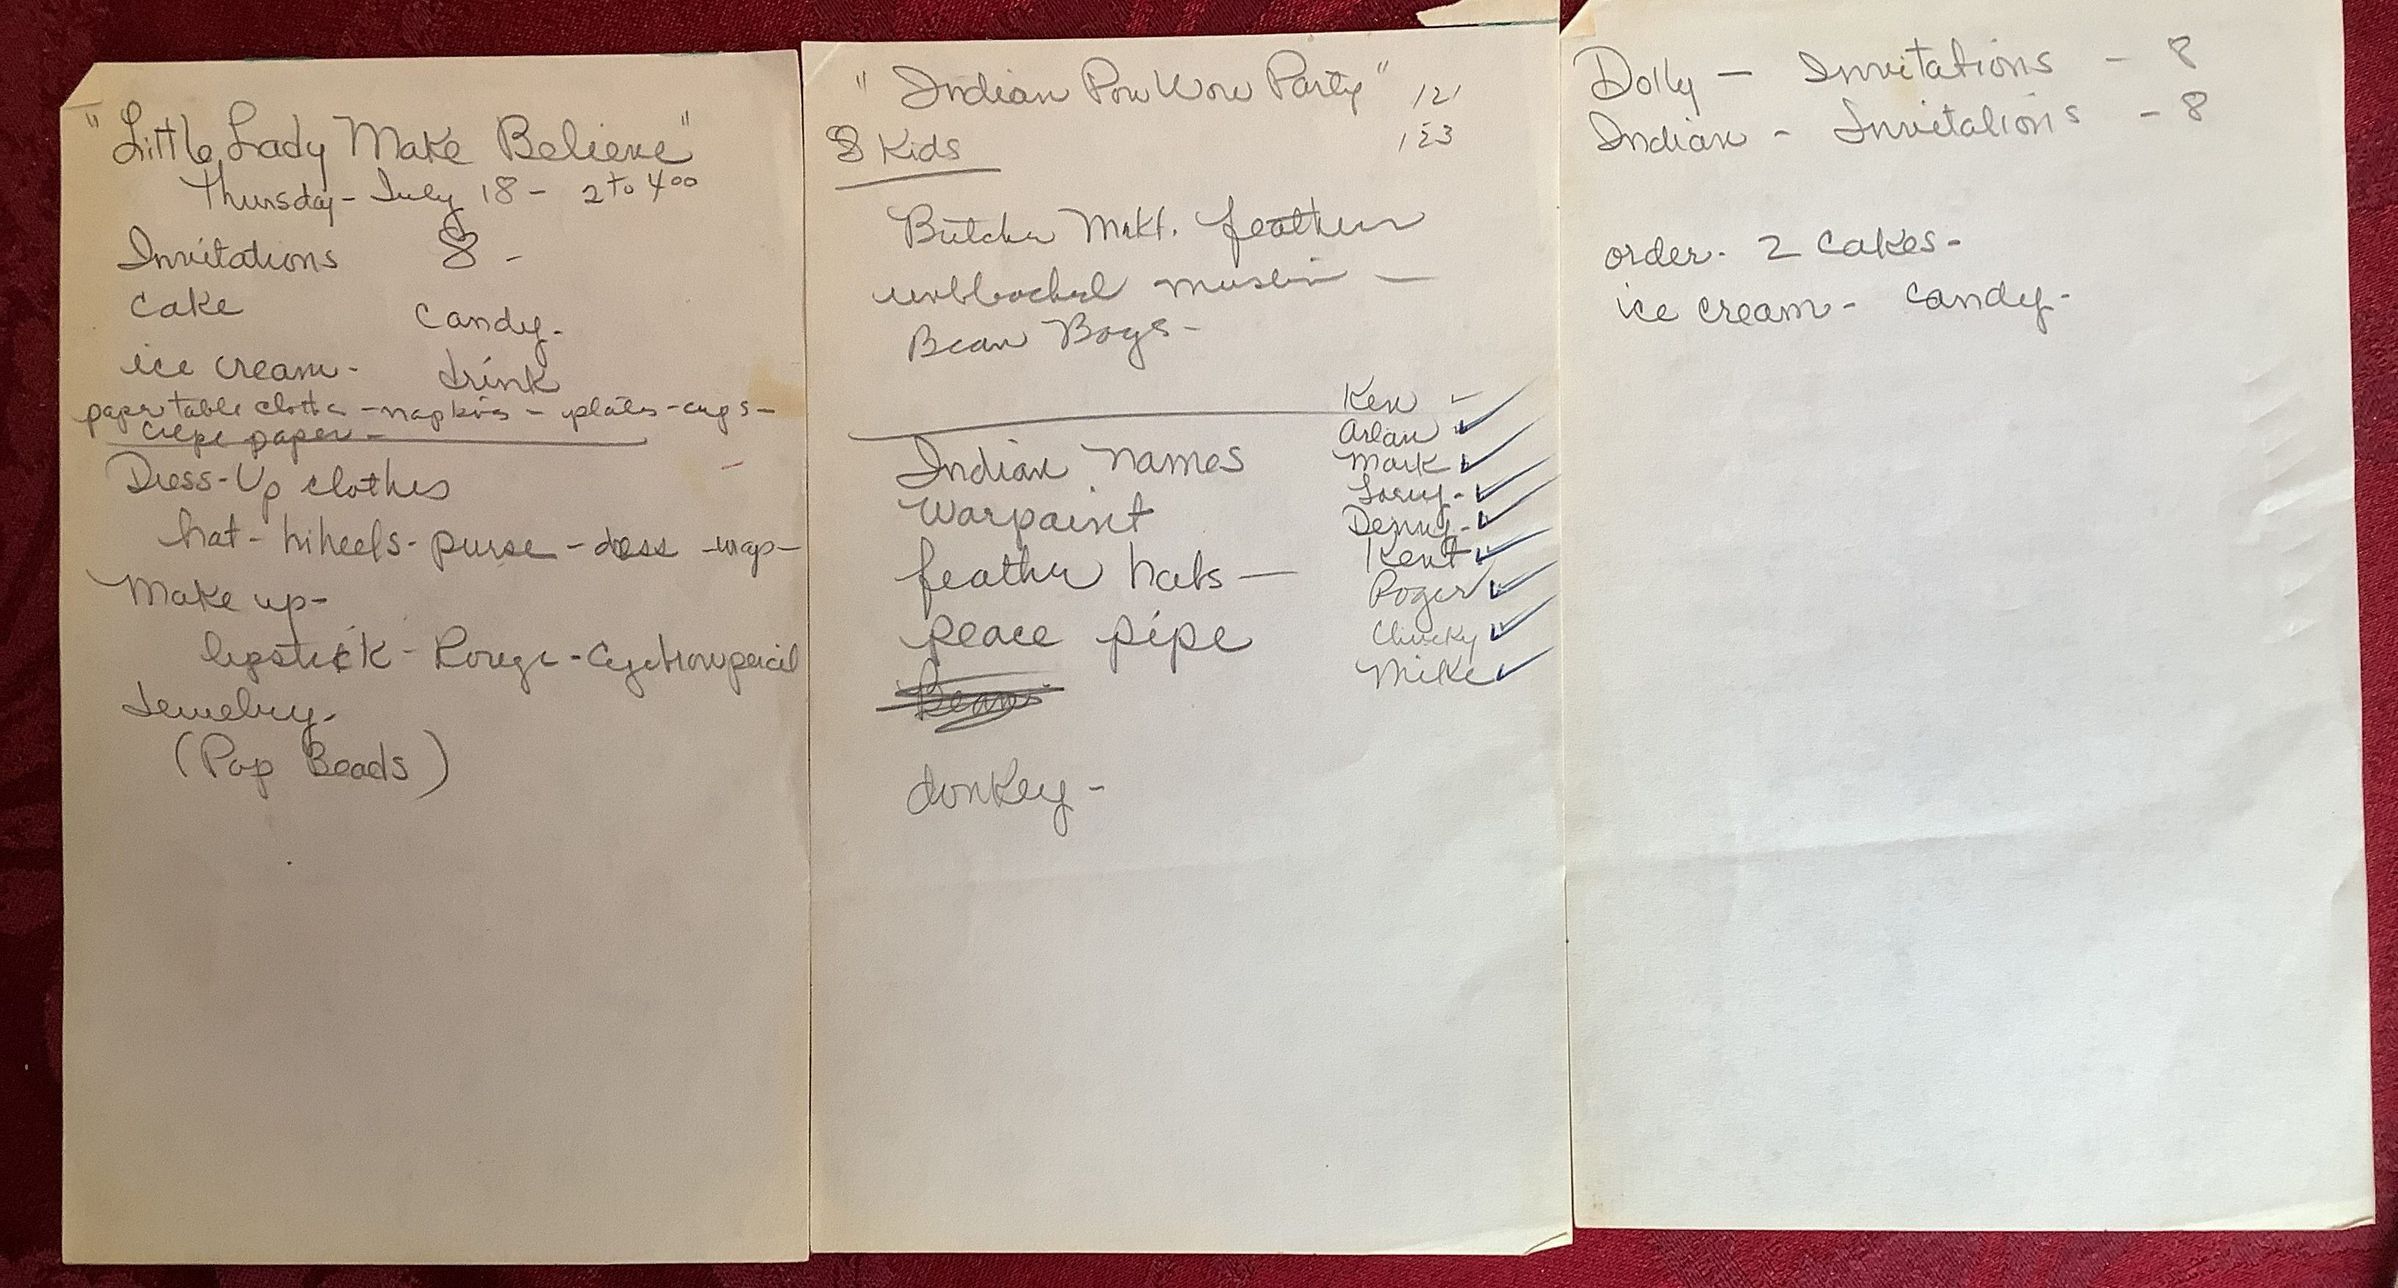 "Little Lady Make Believe"
Thursday - July 18 - 2 to 4⁰⁰
Invitations 8 -
cake candy -
ice cream - drink
paper table cloth - napkins - plates - cups -
crepe paper -
Dress-Up clothes
hat - hiheels - purse - dress - wrap -
Make up -
lipstick - Rouge - Eyebrow pencil
Jewelry -
(Pop Beads)
"Indian Pow Wow Party" 121
8 Kids 123
Butcher Mrkt. feathers
unbleached muslin -
Bean Bags -
Ken -
Arlan ✓
Indian names Mark ✓
Larry - ✓
warpaint Denny - ✓
Kent ✓
feather hats - Roger ✓
peace pipe Chucky ✓
Mike ✓
Bean
donkey -
Dolly - Invitations - 8
Indian - Invitations - 8
order - 2 cakes -
ice cream - candy -